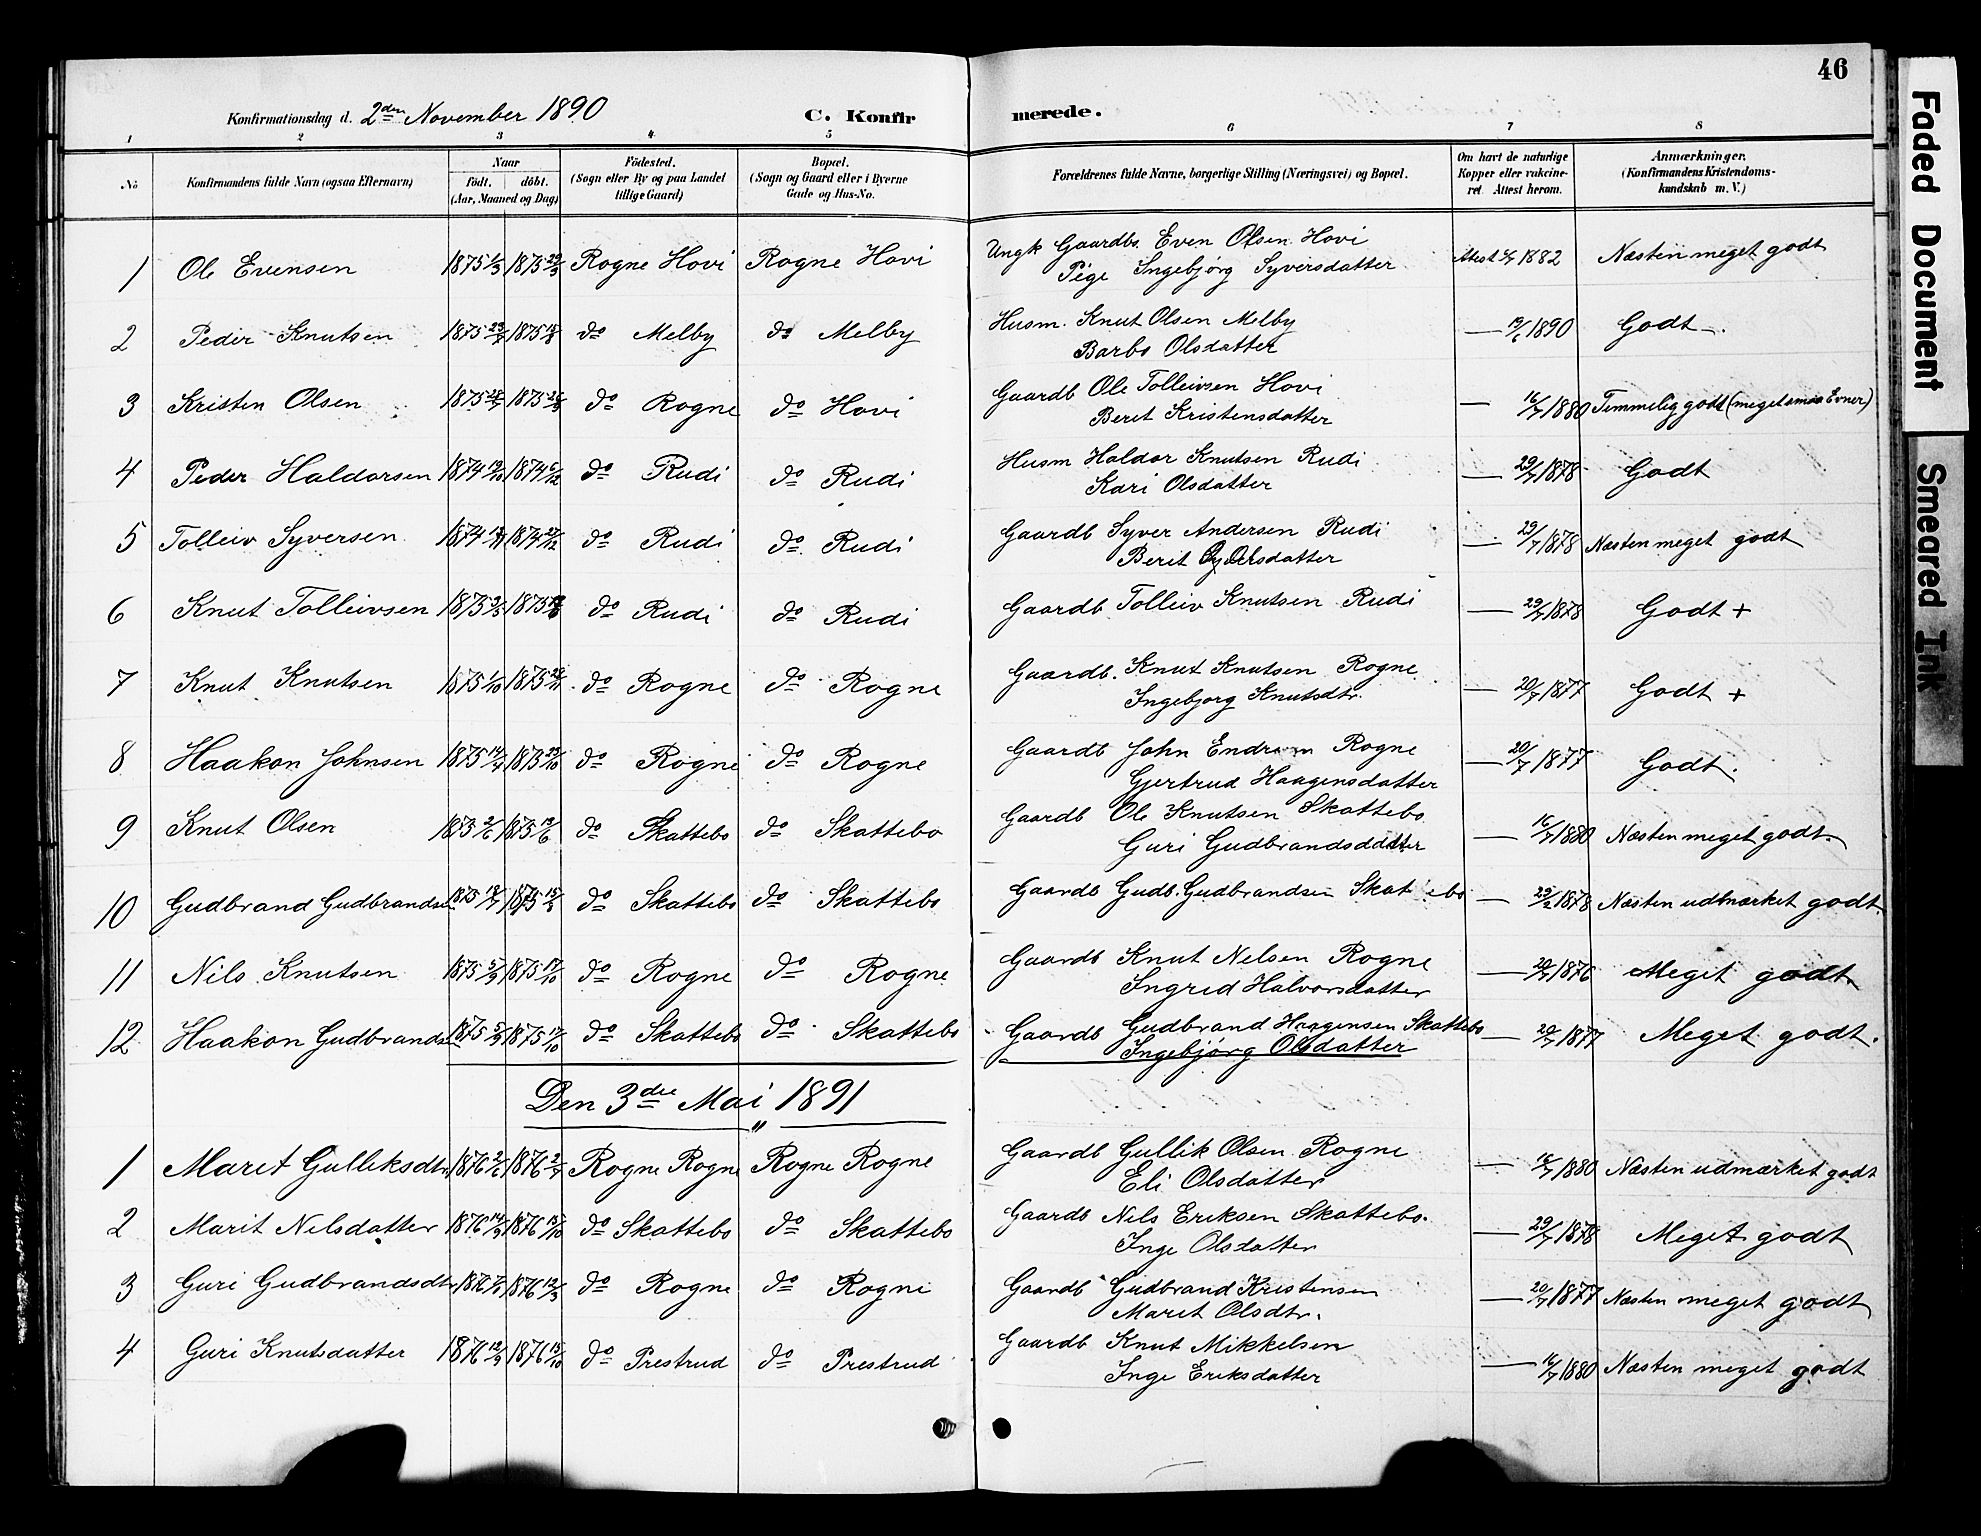 46
Konfirmationsdag d. 2den November 1890 C. Konfirmerede.
1 2 3 4 5 6 7 8
No Konfirmandens fulde Navn (ogsaa Efternavn) Naar födt. döbt. (Aar, Maaned og Dag) Födested. (Sogn eller By og paa Landet tillige Gaard) Bopæl. (Sogn og Gaard eller i Byerne Gade og Hus-No. Forældrenes fulde Navne, borgerlige Stilling (Næringsvei) og Bopæl. Om havt de naturlige Kopper eller vakcineret. Attest herom. Anmærkninger. (Konfirmandens Kristendomskundskab m. V.)
1 Ole Evensen 1875 1875 Rogne Hovi Rogne Hovi Ungk Gaardbs. Even Olsen Hovi Attest 1882 Næsten meget godt
Pige Ingebjørg Syversdatter
2 Peder Knutsen 1875 1875 do Melby do Melby Husm. Knut Olsen Melby — 1890 Godt.
Barbo Olsdatter
3 Kristen Olsen 1875 1875 do Rogne do Hovi Gaardb Ole Tolleivsen Hovi — 16/7 1880 Temmelig godt (meget smaa Evner)
Beret Kristensdatter
4 Peder Haldorsen 1874 19/10 1874 6/12 do Rudi do Rudi Husm Haldor Knutsen Rudi — 29/7 1878 Godt
Kari Olsdatter
5 Tolleiv Syversen 1874 1874 27/12 do Rudi do Rudi Gaardb Syver Andersen Rudi — 29/7 1878 Næsten meget godt
Berit
6 Knut Tolleivsen 1875 1875 do Rudi do Rudi Gaardb Tolleiv Knutsen Rudi — 29/7 1878 Godt +
7 Knut Knutsen 1875 1/10 1875 28/11 do Rogne do Rogne Gaardb. Knut Knutsen Rogne — 20/7 1877 Godt +
Ingebjorg Knutsdtr.
8 Haakon Johnsen 1875 1875 do Rogne do Rogne Gaardb John Rogne — 20/7 1877 Godt.
Gjertrud Haagensdatter
9 Knut Olsen 1875 2/6 1875 19/6 do Skattebo do Skattebo Gaardb Ole Knutsen Skattebo — 16/7 1880 Næsten meget godt.
Guri Gudbrandsdatter
10 Gudbrand Gudbrandse 1875 1875 15/8 do Skattebo do Skattebo Gaardb Gudb. Gudbrandsen Skattebo — 1878 Næsten udmærket godt.
11 Nils Knutsen 1875 5/9 1875 17/10 do Rogne do Rogne Gaardb Knut Nelsen Rogne — 1876 Meget godt.
Ingrid Halvorsdatter
12 Haakon Gudbrands 1875 5/9 1875 17/10 do Skattebo do Skattebo Gaardb Gudbrand Haagensen Skattebo — 20/7 1877 Meget godt.
Ingebjørg Olsdatter
Den 3die Mai 1891
1 Maret Gulliksdtr 1876 2/6 1876 2/7 Rogne Rogne Rogne Rogne Gaardb Gullik Olsen Rogne — 16/7 1880 Næsten udmærket godt
Eli Olsdatter
2 Marit Nelsdatter 1876 14/9 1876 15/10 do Skattebo do Skattebo Gaardb Nils Eriksen Skattebo. — 29/7 1878 Meget godt
Inge Olsdatter
3 Guri Gudbrandsdtr 1876 1876 12/3 do Rogne do Rogne Gaardb Gudbrand Kristensen — 20/7 1877 Næsten meget godt
Marit Olsdtr.
4 Guri Knutsdatter 1876 12/9 1876 15/10 do Prestrud do Prestrud Gaardb Knut Mikkelsen — 16/7 1880 Næsten meget godt
Inge Eriksdatter
Faded Document
Smeared Ink